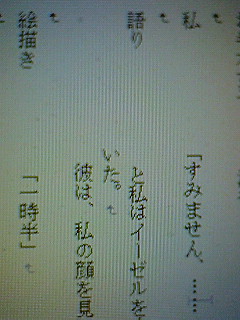 私　「すみません、……
語り　と私はイーゼルを
いた。
彼は、私の顔を見
絵描き　「一時半」